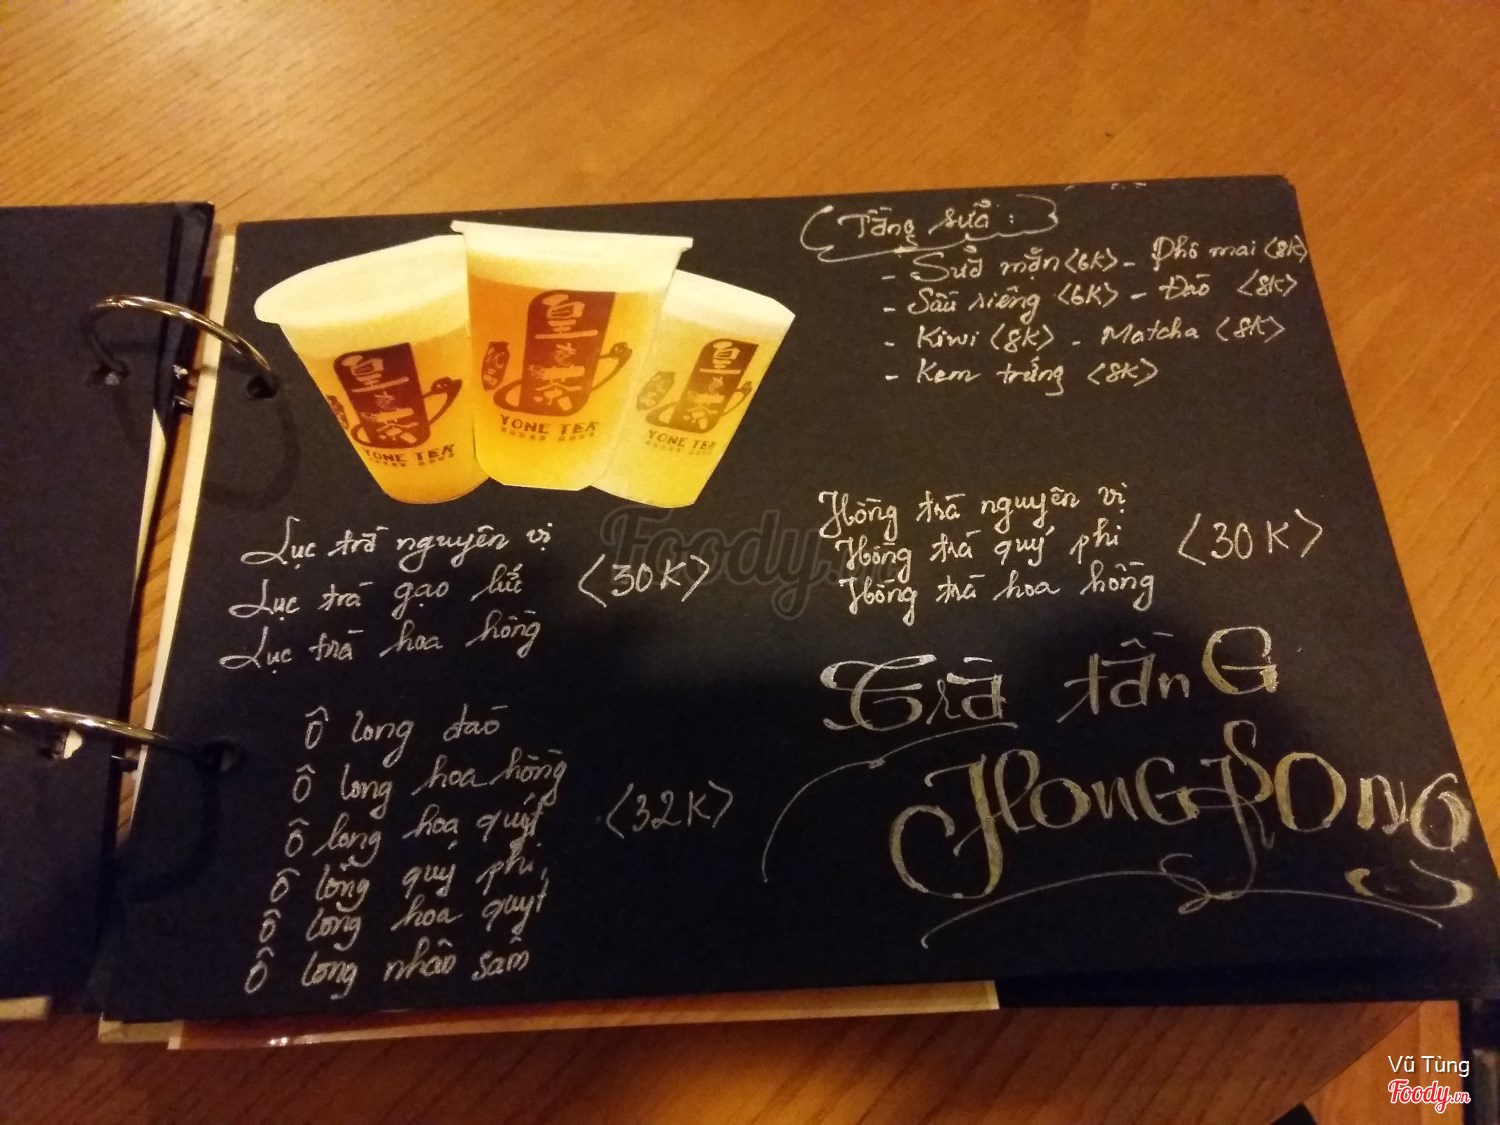 Tầng sữa:
- Sữa mặn <6K> - Phô mai <8K>
- Sầu riêng <6K> - Đào <8K>
- Kiwi <8K> - Matcha <8K>
- Kem trứng <8K>
皇茶
YONE TEA
皇茶
YONE TEA
皇茶
YONE TEA
Lục trà nguyên vị
Lục trà gạo lức <30K>
Lục trà hoa hồng
Hồng trà nguyên vị
Hồng trà quý phi <30K>
Hồng trà hoa hồng
Trà tầnG
HonGKOnG
Ô long đào
Ô long hoa hồng
Ô long hoa quýt <32K>
Ô lông quý phi
Ô long hoa quýt
Ô long nhân sâm
Foody.vn
Vũ Tùng
Foody.vn